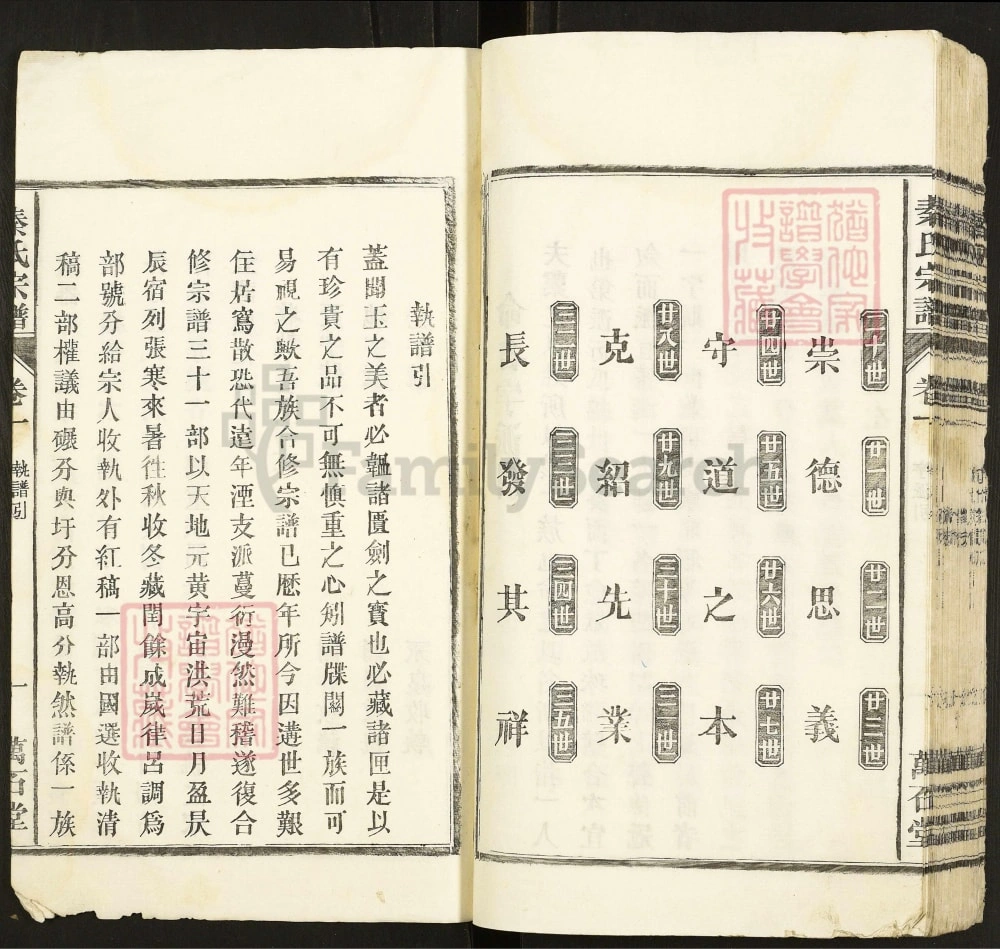 秦氏宗譜
卷一
萬石堂
二十世 崇
廿一世 德
廿二世 思
廿三世 義
廿四世 守
廿五世 道
廿六世 之
廿七世 本
廿八世 克
廿九世 紹
三十世 先
三一世 業
三二世 長
三三世 發
三四世 其
三五世 祥
執譜引
蓋聞玉之美者必韞諸匱劍之寶也必藏諸匣是以
有珍貴之品不可無慎重之心矧譜牒關一族而可
易視之歟吾族合修宗譜已歷年所今因遘世多艱
住居寫散恐代遠年湮支派蔓衍漫然難稽遂復合
修宗譜三十一部以天地元黄宇宙洪荒日月盈昃
辰宿列張寒來暑徃秋收冬藏閏餘成歲律呂調為
部號分給宗人收執外有紅稿一部由國選收執清
稿二部權議由碾分與圩分恩高分執然譜係一族
秦氏宗譜
卷一
執譜引
一
萬石堂
FamilySearch